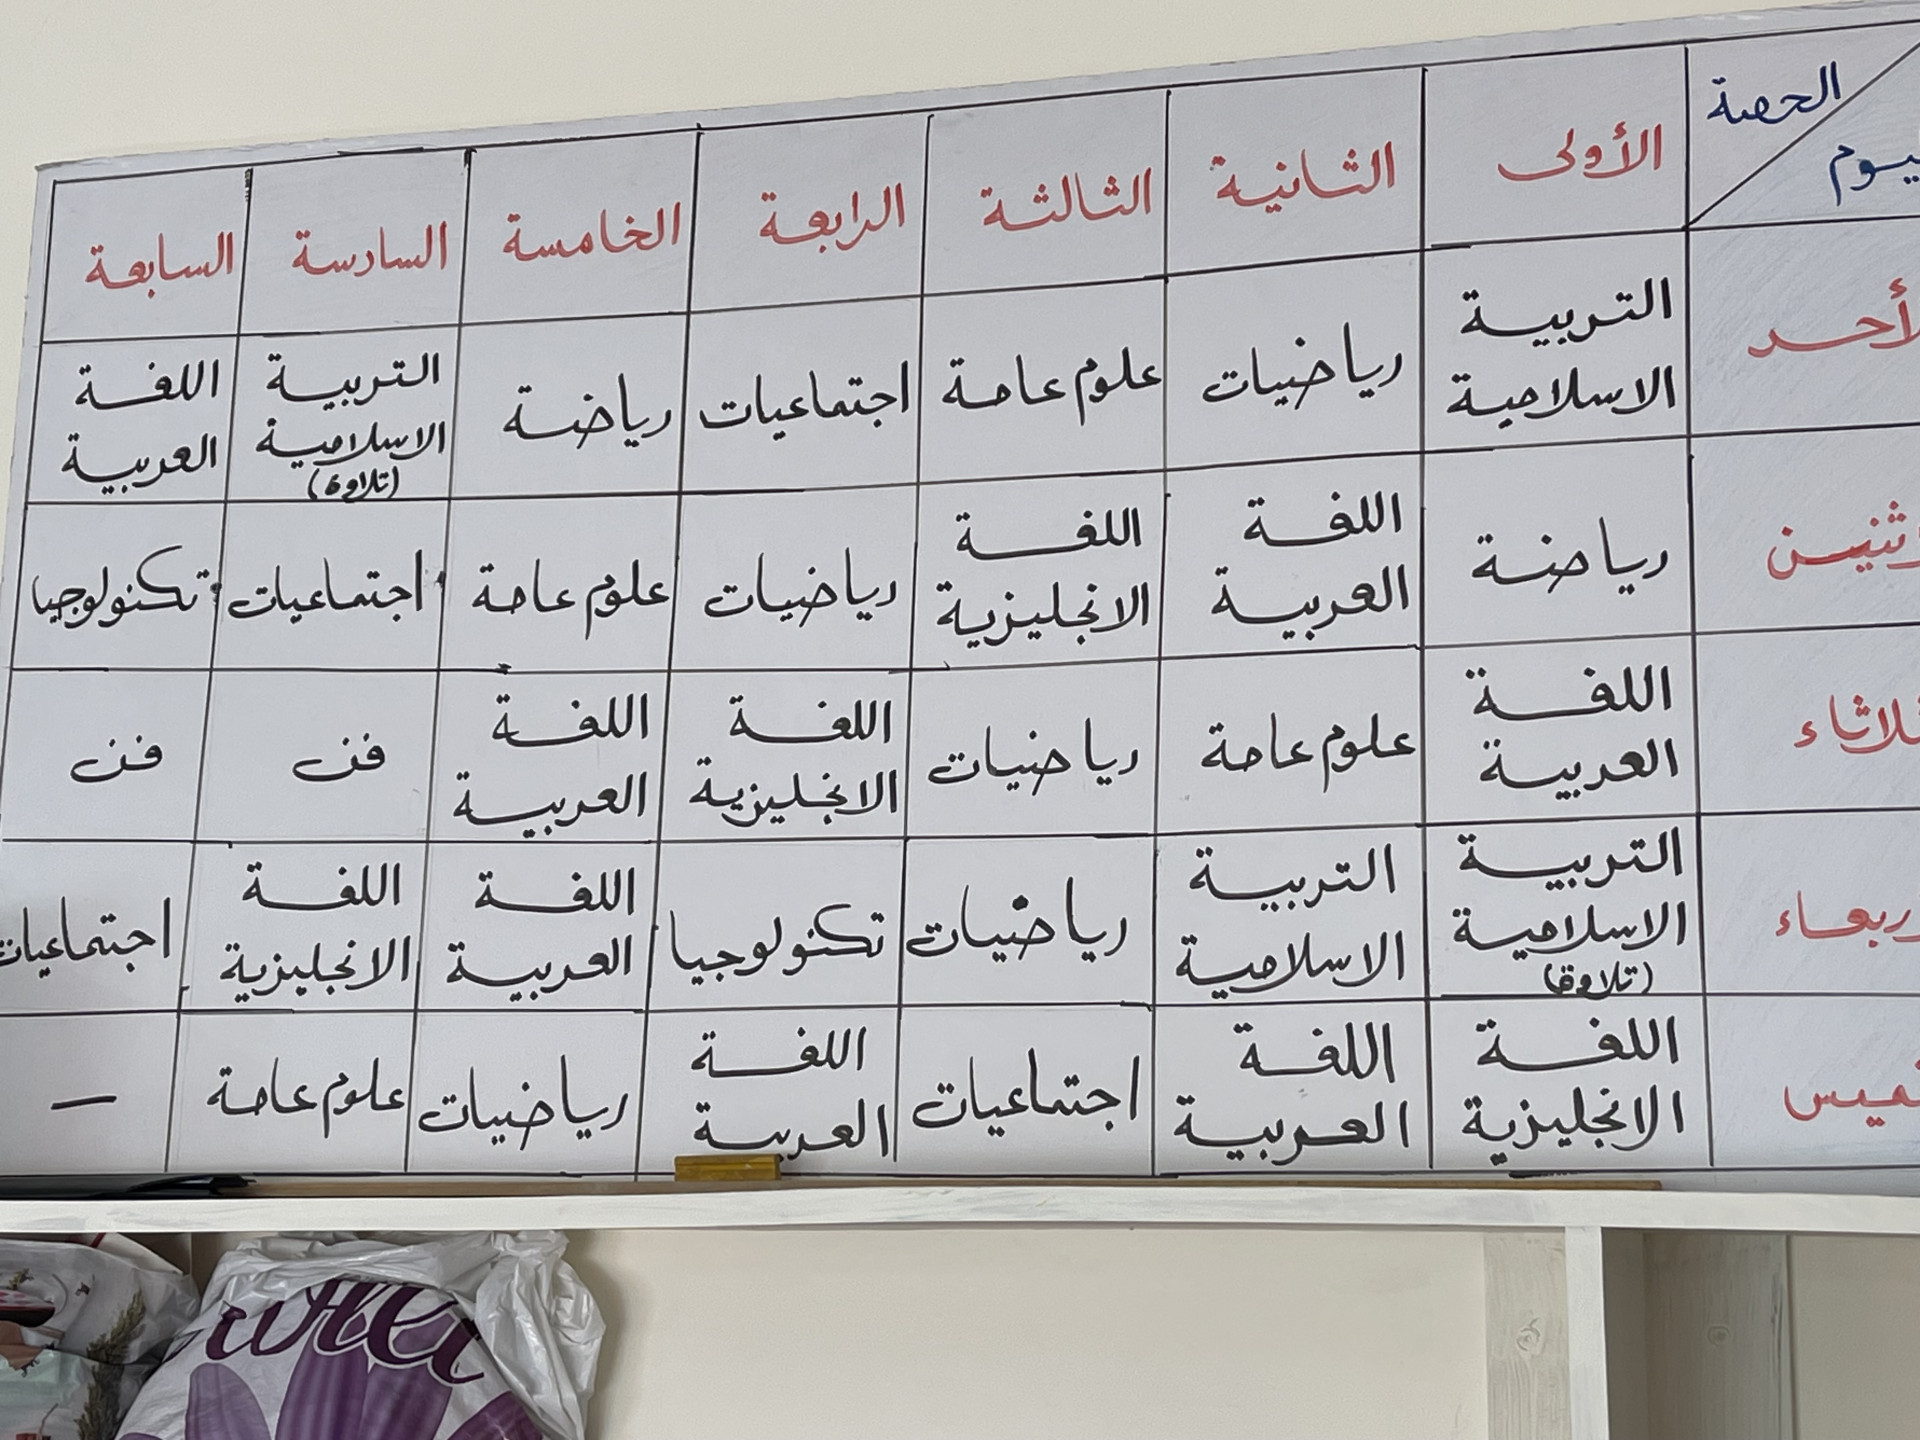 الحصة
اليوم
الأولى الثانية الثالثة الرابعة الخامسة السادسة السابعة
الأحد
التربية الاسلامية
رياضيات
علوم عامة
اجتماعيات
رياضة
التربية الاسلامية (تلاوة)
اللغة العربية
اثنين
رياضة
اللغة العربية
اللغة الانجليزية
رياضيات
علوم عامة
اجتماعيات
تكنولوجيا
ثلاثاء
اللغة العربية
علوم عامة
رياضيات
اللغة الانجليزية
اللغة العربية
فن
فن
ربعاء
التربية الاسلامية (تلاوة)
التربية الاسلامية
رياضيات
تكنولوجيا
اللغة العربية
اللغة الانجليزية
اجتماعيات
خميس
اللغة الانجليزية
اللغة العربية
اجتماعيات
اللغة العربية
رياضيات
علوم عامة
—